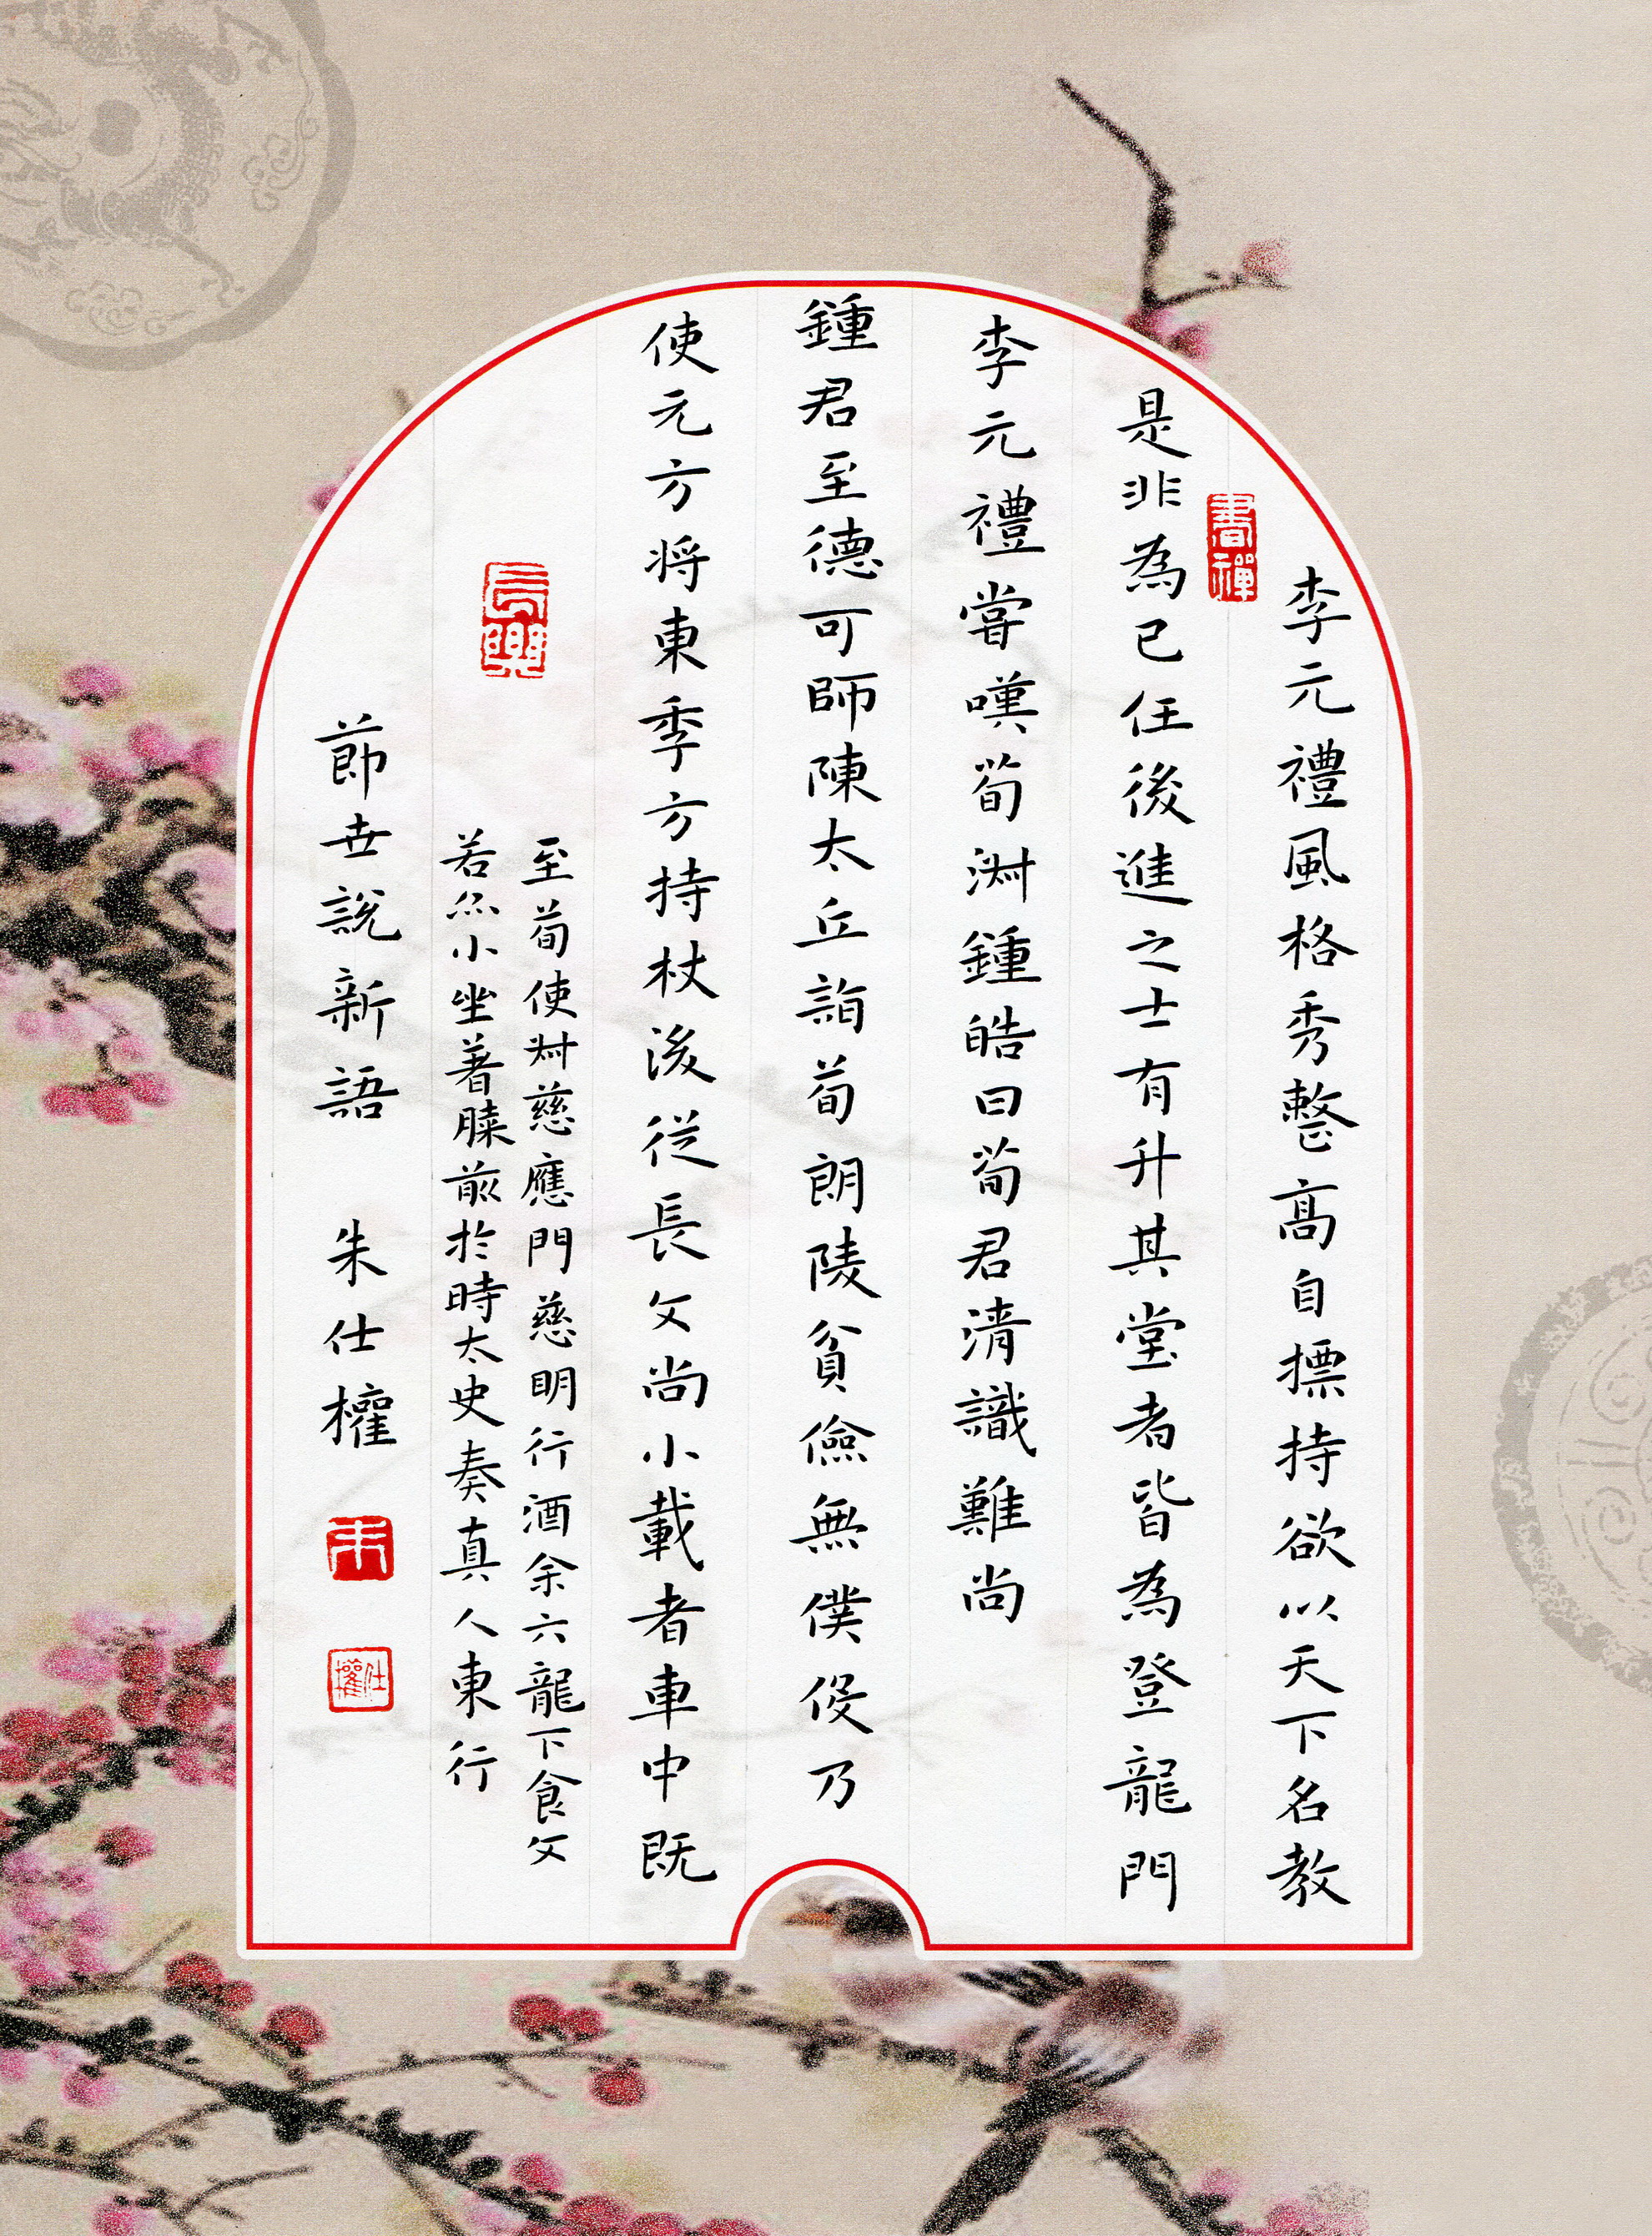 李元禮風格秀整高自標持欲以天下名教
是非為己任後進之士有升其堂者皆為登龍門
李元禮嘗嘆荀淑鍾皓曰荀君清識難尚
鍾君至德可師陳太丘詣荀朗陵貧儉無僕役乃
使元方將東季方持杖後從長文尚小載者車中既
至荀使叔慈應門慈明行酒余六龍下食文
若亦小坐著膝前於時太史奏真人東行
節世說新語 朱仕權
書禪
長樂
朱
仕權